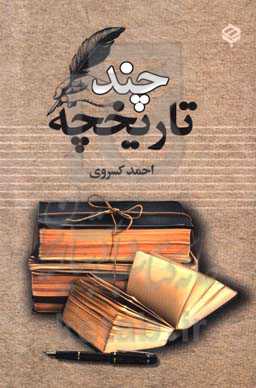 چند
تاریخچه
احمد کسروی